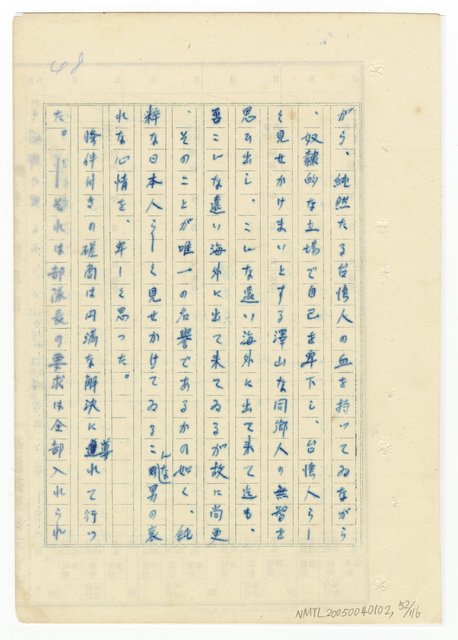 48
がら、純然たる台湾人の血を持つてゐながら
、奴隷的な立場で自己を卑下し、台湾人らし
く見せかけまいとする澤山な同郷人の無智を
思ひ出し、こんな遠い海外に出て来て迄も、
否こんな遠い海外に出て来てゐるが故に尚更
、そのことが唯一の名誉であるかの如く、純
粋な日本人らしく見せかけてゐるこんな男の哀
れな心情を、卑しく思つた。
條件付きの磋商は円満な解決に導れて行つ
た。――それは部隊長の要求は全部入れられ
NMTL20050040102, 52/116